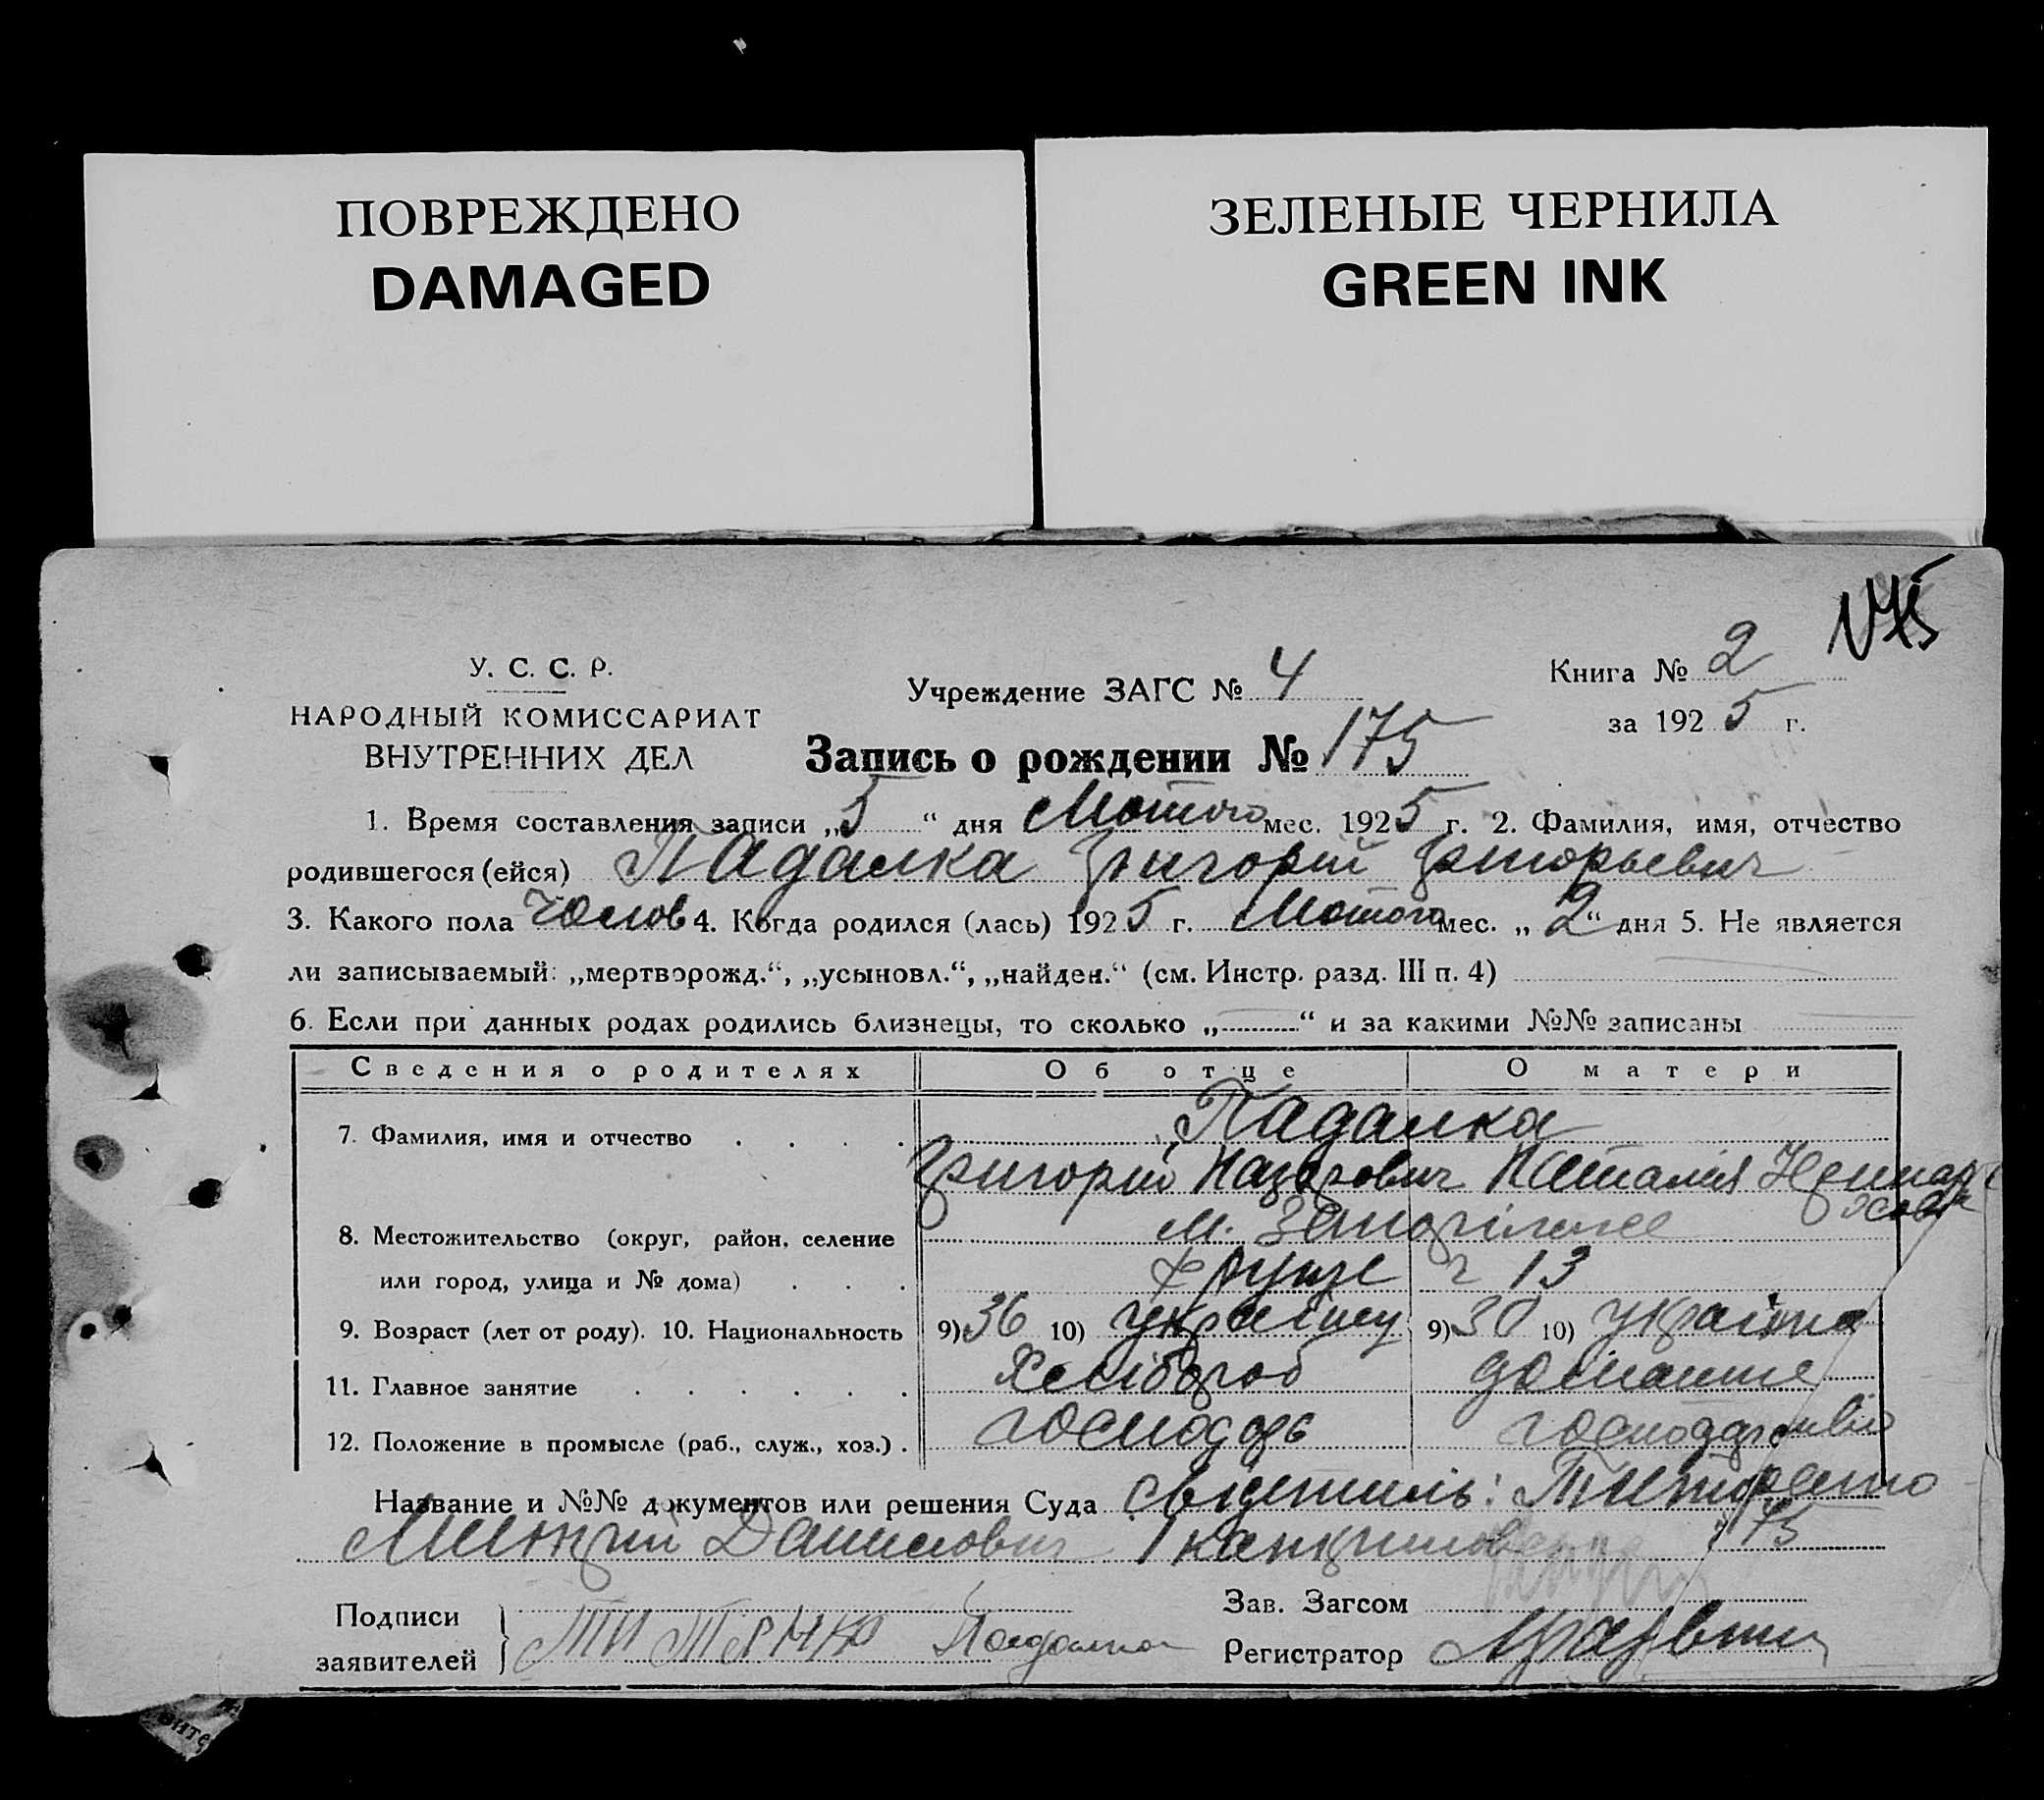 ПОВРЕЖДЕНО
DAMAGED
ЗЕЛЕНЫЕ ЧЕРНИЛА
GREEN INK
У. С. С. Р.
НАРОДНЫЙ КОМИССАРИАТ
ВНУТРЕННИХ ДЕЛ
Учреждение ЗАГС № 4
Книга № 2
за 1925 г.
Запись о рождении № 175
1. Время составления записи „5“ дня Лютого мес. 1925 г. 2. Фамилия, имя, отчество
родившегося (ейся) Падалка Григорий Григорьевич
3. Какого пола Чолов 4. Когда родился (лась) 1925 г. Лютого мес. „2“ дня 5. Не является
ли записываемый: „мертворожд.“, „усыновл.“, „найден.“ (см. Инстр. разд. III п. 4)
6. Если при данных родах родились близнецы, то сколько „—“ и за какими №№ записаны
Сведения о родителях Об отце О матери
7. Фамилия, имя и отчество Падалка
Григорий Назарович Наталия
8. Местожительство (округ, район, селение м. Запоріжже
или город, улица и № дома) Фрунзе 13
9. Возраст (лет от роду). 10. Национальность 9) 36 10) українец 9) 30 10) україна
11. Главное занятие Хлібороб домашне
12. Положение в промысле (раб., служ., хоз.) господарь господарство
Название и №№ документов или решения Суда свідетиль: Титаренко
Данилович 75
Подписи
заявителей Падалка
Зав. Загсом
Регистратор